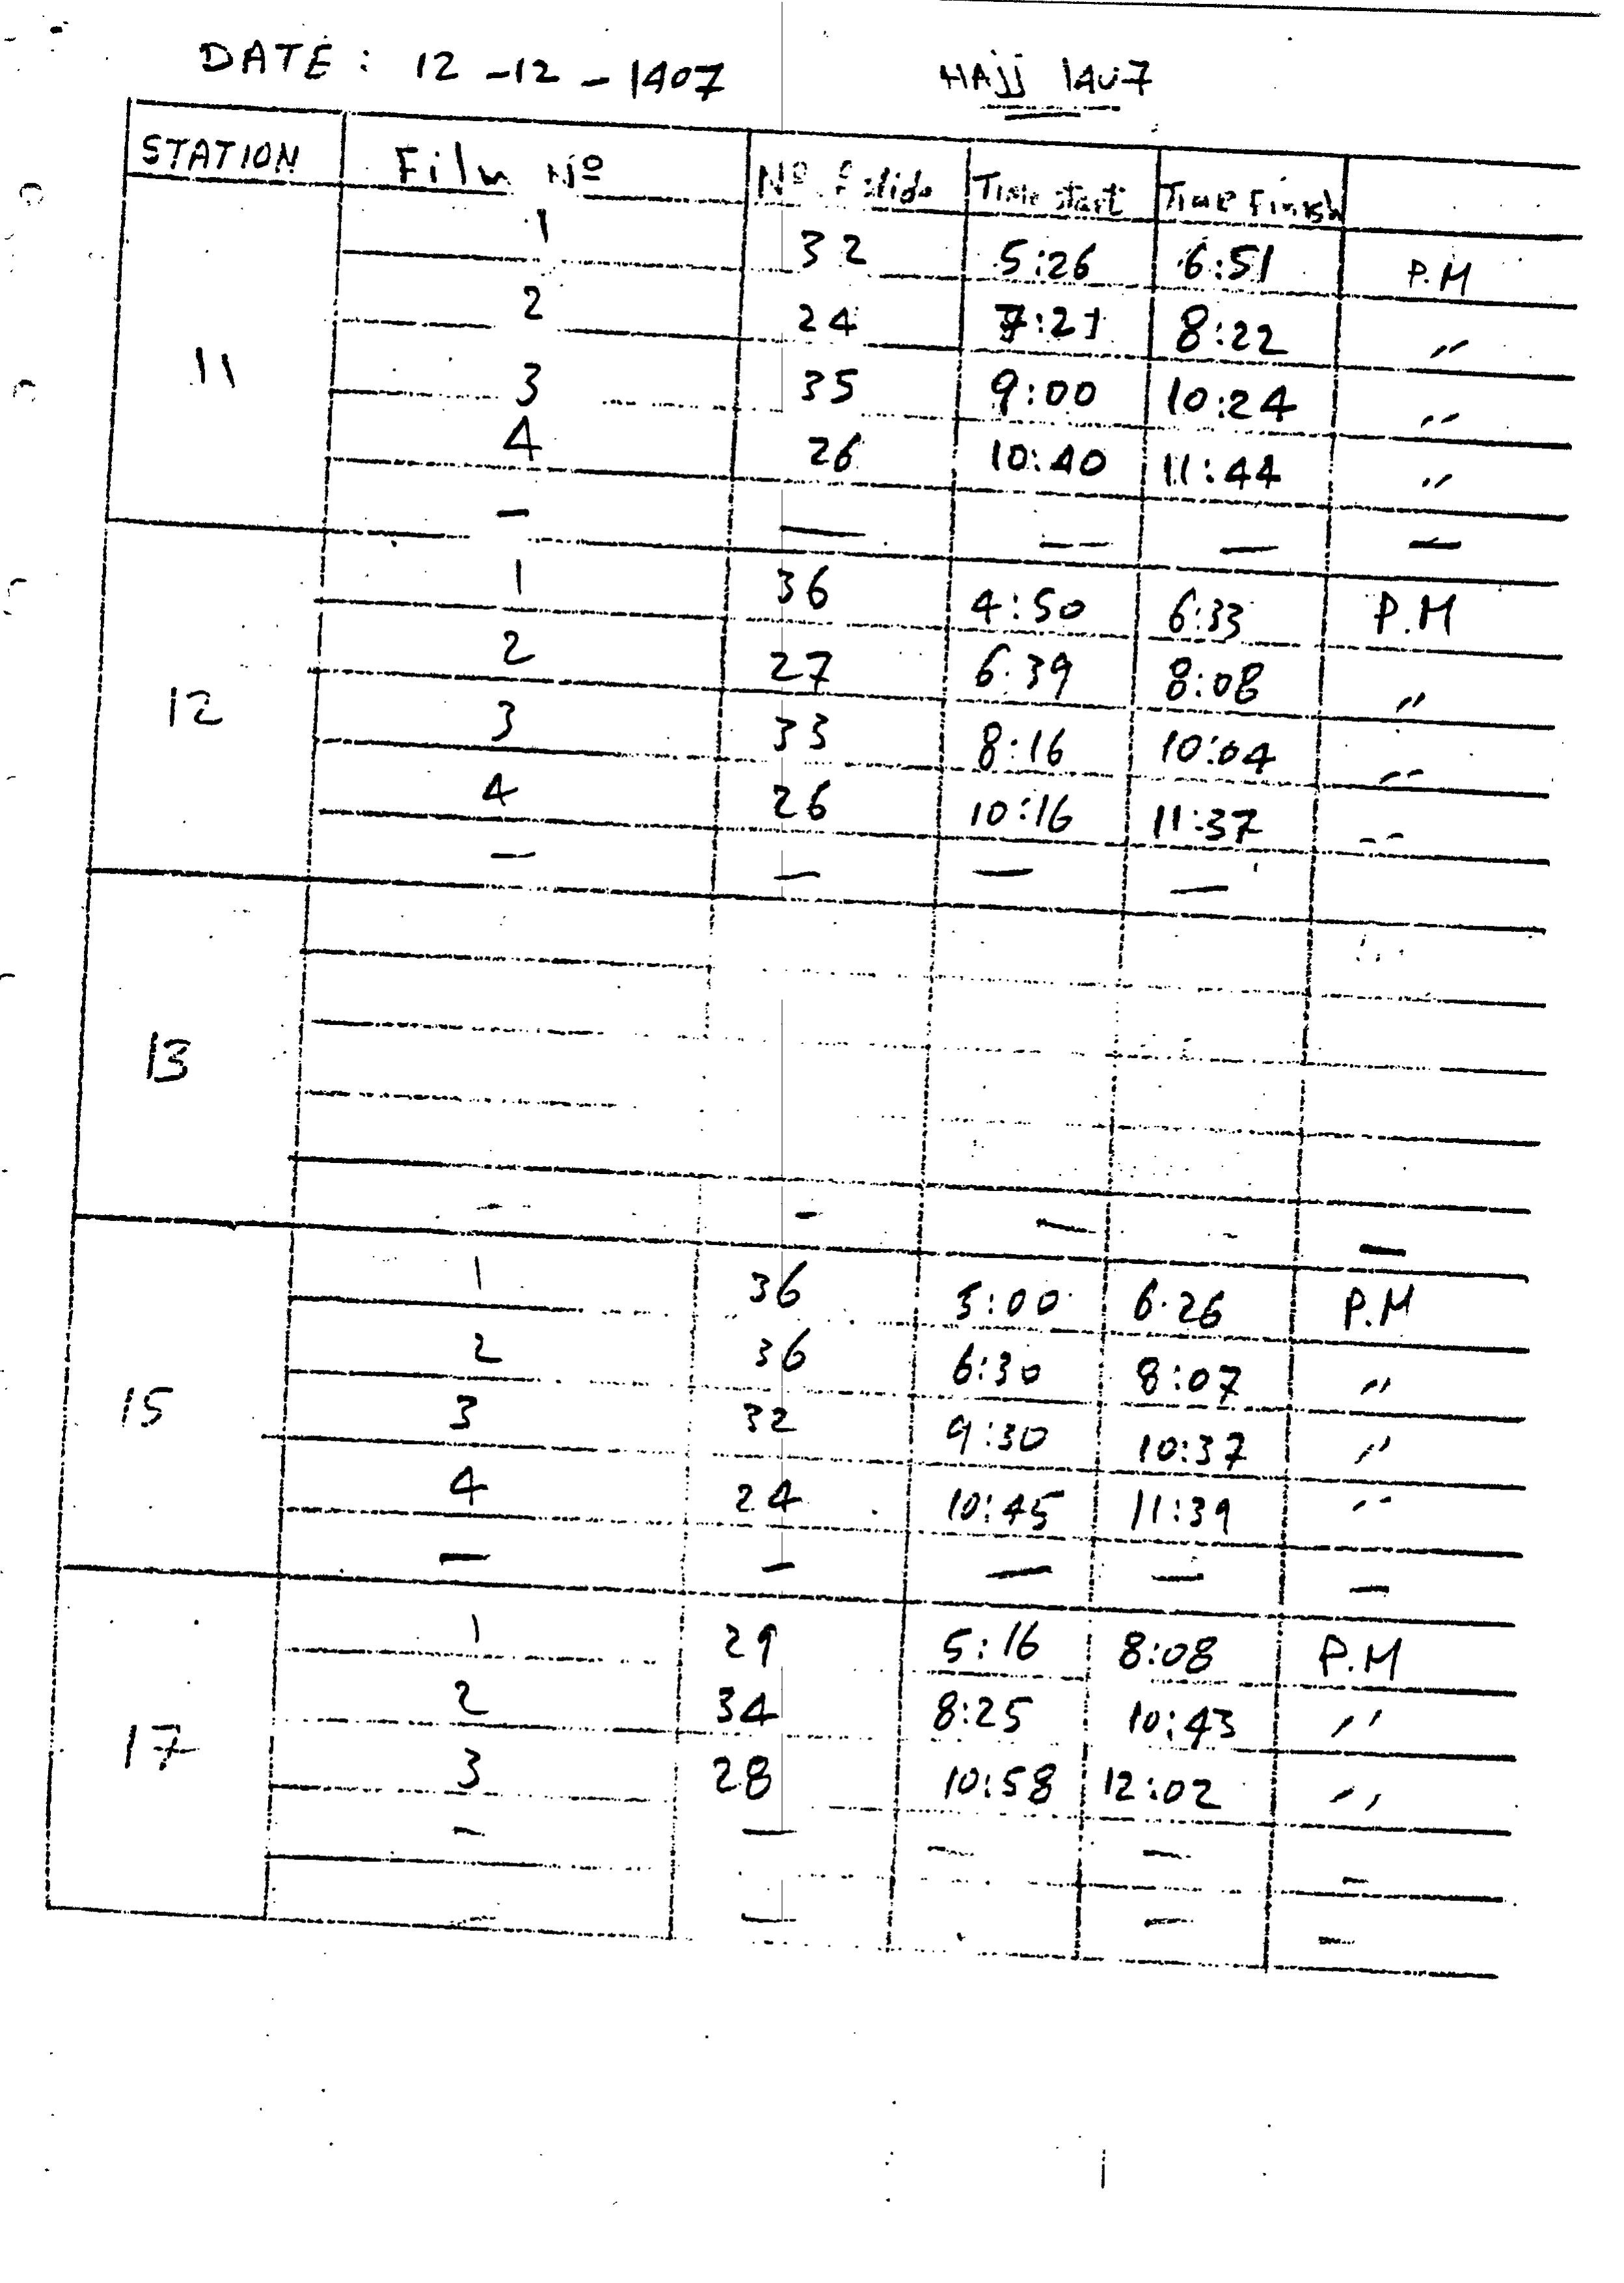 DATE : 12 - 12 - 1407 HAJJ 1407
STATION Film Nº Nº slide Time start Time Finish
1 32 5:26 6:51 P.M
2 24 7:21 8:22 "
11
3 35 9:00 10:24 "
4 26 10:40 11:44 "
— — — — —
1 36 4:50 6:33 P.M
2 27 6:39 8:08 "
12
3 33 8:16 10:04 "
4 26 10:16 11:37 "
— — — —
13
- - — - —
1 36 5:00 6:26 P.M
2 36 6:30 8:07 "
15
3 32 9:30 10:37 "
4 24 10:45 11:39 "
— — — — —
1 29 5:16 8:08 P.M
2 34 8:25 10:43 "
17
3 28 10:58 12:02 "
— — — — —
— — — —